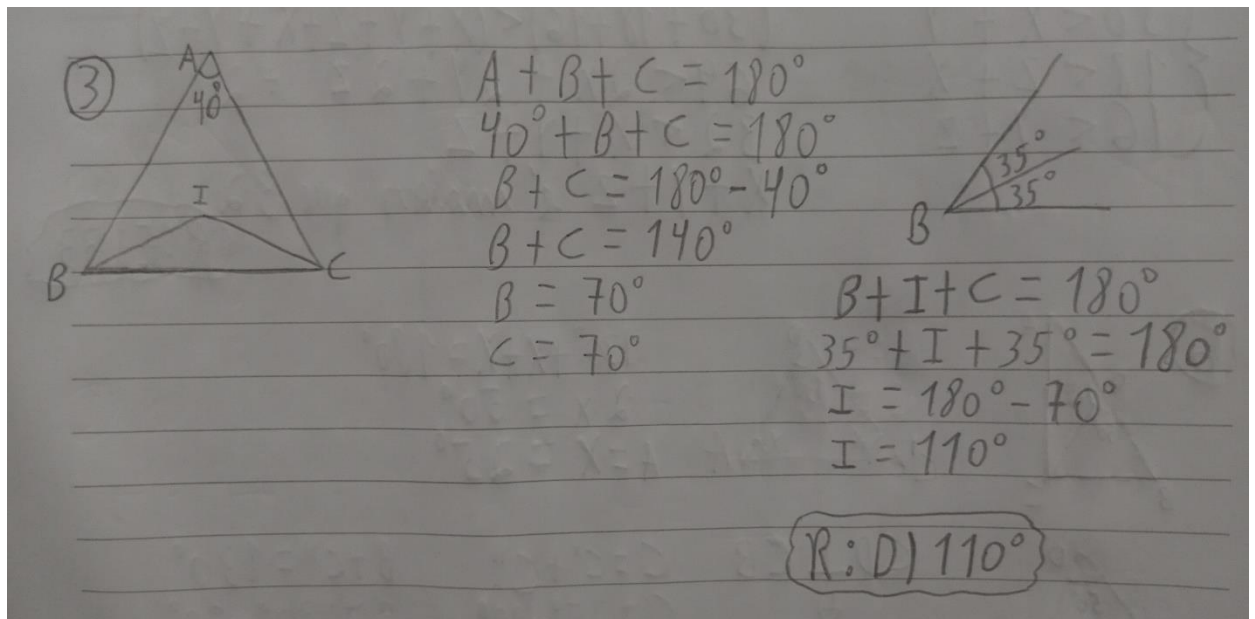 3
A
40°
I
B
C
A + B + C = 180°
40° + B + C = 180°
B + C = 180° - 40°
B + C = 140°
B = 70°
C = 70°
35°
35°
B
B + I + C = 180°
35° + I + 35° = 180°
I = 180° - 70°
I = 110°
R: D) 110°